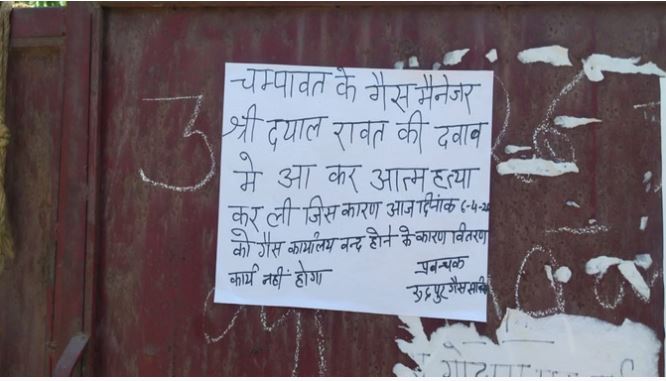 चम्पावत के गैस मैनेजर
श्री दयाल रावत की दवाव
मे आ कर आत्म हत्या
कर ली जिस कारण आज दिनांक 6-4-20
को गैस कार्यालय वन्द होने के कारण वितरण
कार्य नहीं होगा
प्रवन्धक
रूद्रपुर गैस
3